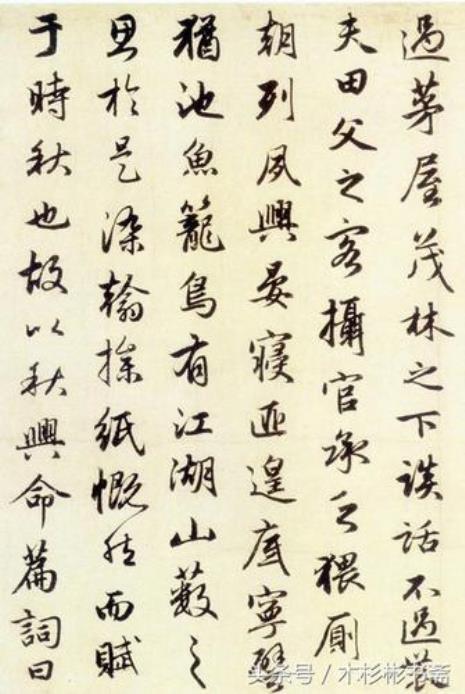 過茅屋茂林之下談話不過農
夫田父之客攝官承乏猥廁
朝列夙興晏寢匪遑底寧譬
猶池魚籠鳥有江湖山藪之
思於是染翰操紙慨然而賦
于時秋也故以秋興命篇詞曰
头条号 / 木杉彬书斋